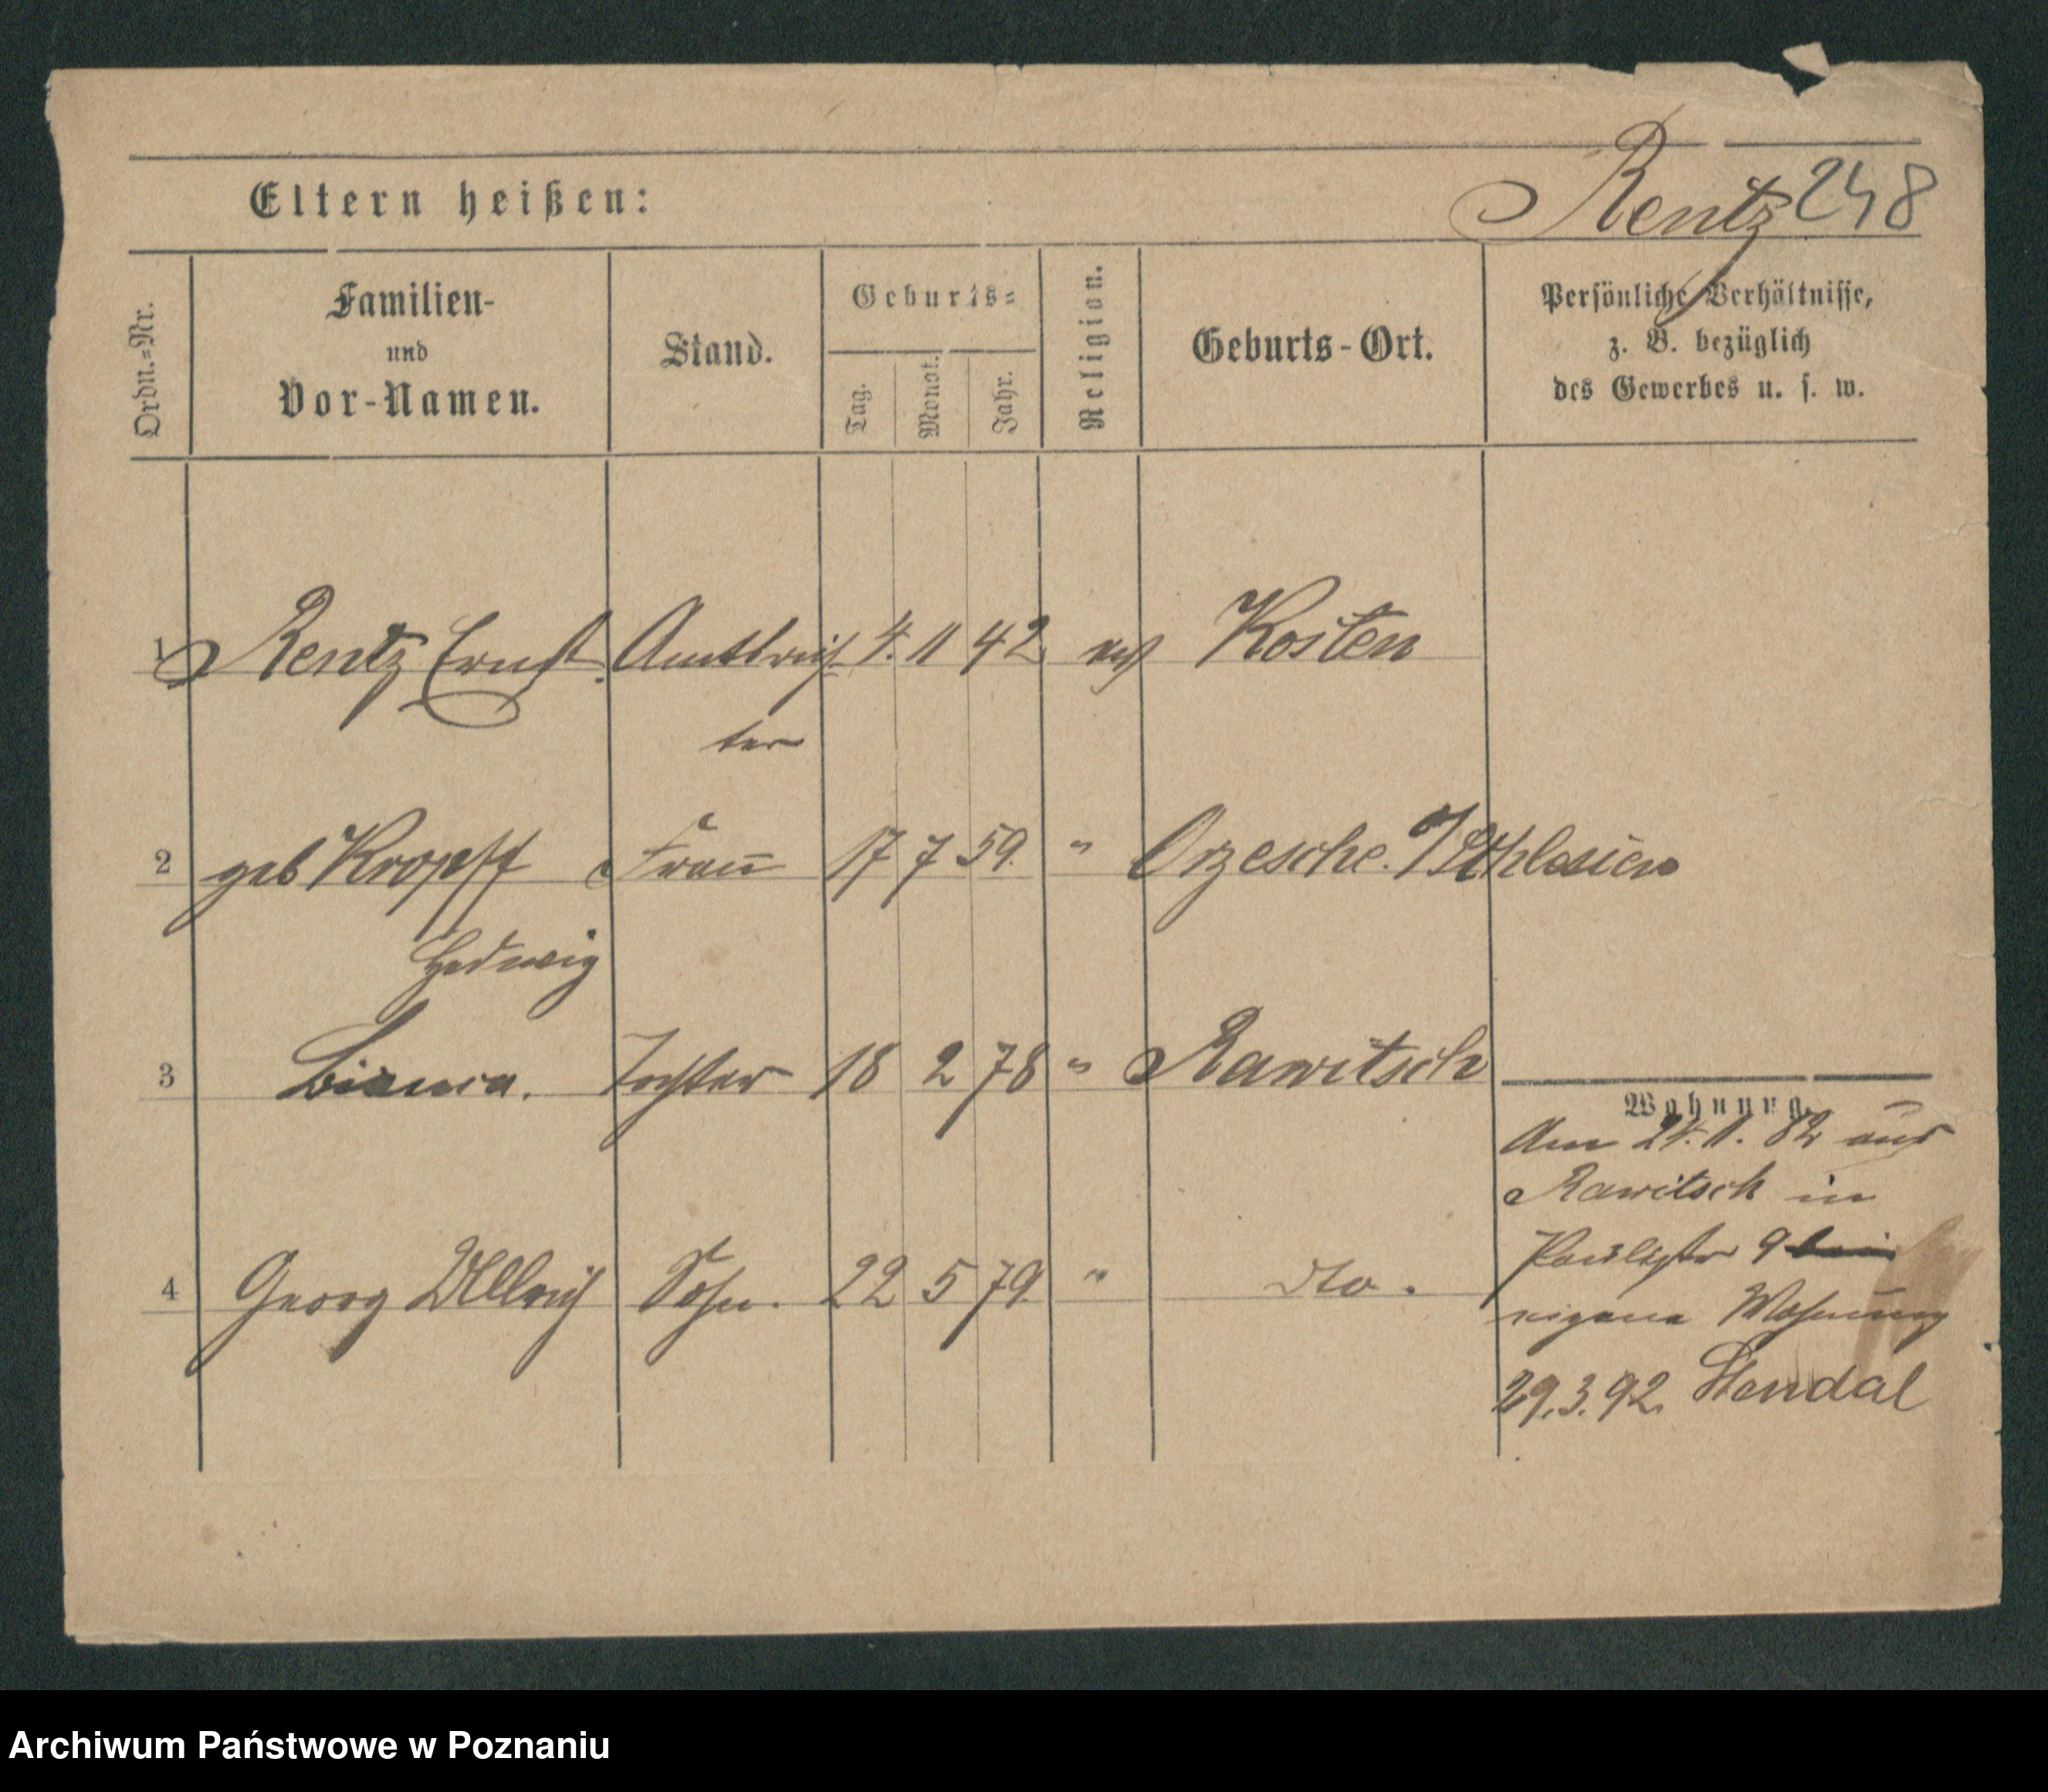 Eltern heißen:
Rentz 248
Ordn.-Nr.
Familien-
und
Vor-Namen.
Stand.
Geburts-
Tag.
Monat.
Jahr.
Religion.
Geburts-Ort.
Persönliche Verhältnisse,
z. B. bezüglich
des Gewerbes u. s. w.
1 Rentz Ernst Amtsrich 4. 11 42 Kosten
ter
2 geb Kropff Frau 17 7 59. " Orzesche.
Hedwig
3 Bianca. Tochter 18 2 78 " Rawitsch
Wohnung.
Am 24. 11. 82 aus
Rawitsch in
Paulistr 9
4 Georg Ullrich Sohn. 22 5 79. " dto.
eigene Wohnung
29.3.92. Stendal
Archiwum Państwowe w Poznaniu